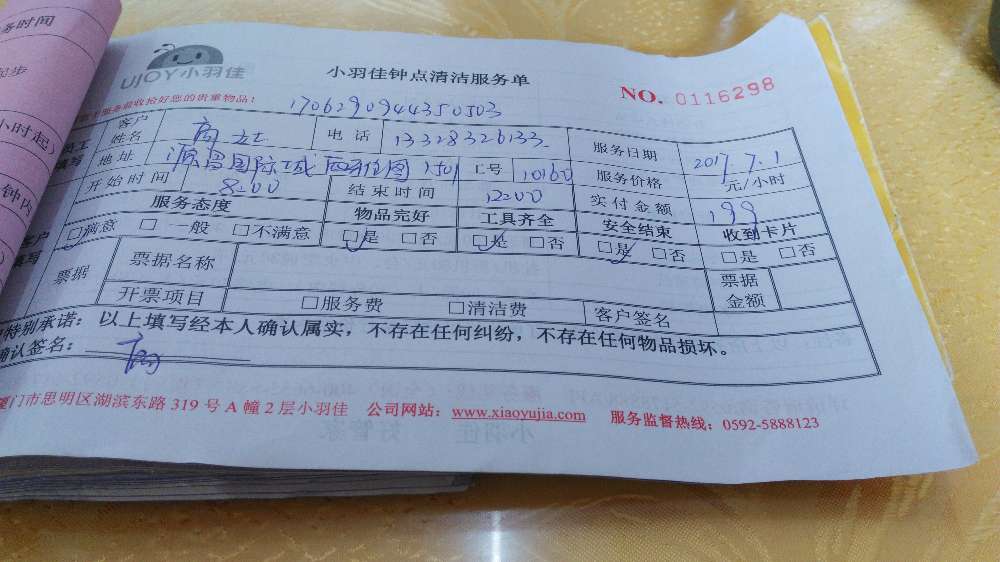 务时间
起步
小时起)
钟内
UJOY小羽佳
小羽佳钟点清洁服务单
NO. 0116298
服务前收拾好您的贵重物品!
1706290944350503
员工填写 客户姓名 电话 13328326133 服务日期 2017.7.1
地址 源昌国际城 1501 工号 10160 服务价格 元/小时
开始时间 8:00 结束时间 12:00 实付金额 199
服务态度 物品完好 工具齐全 安全结束 收到卡片
客户填写 □满意 □一般 □不满意 □是 □否 □是 □否 □是 □否 □是 □否
票据 票据名称 票据金额
开票项目 □服务费 □清洁费 客户签名
特别承诺:以上填写经本人确认属实,不存在任何纠纷,不存在任何物品损坏。
确认签名:
厦门市思明区湖滨东路 319 号 A 幢 2 层小羽佳 公司网站:www.xiaoyujia.com 服务监督热线:0592-5888123